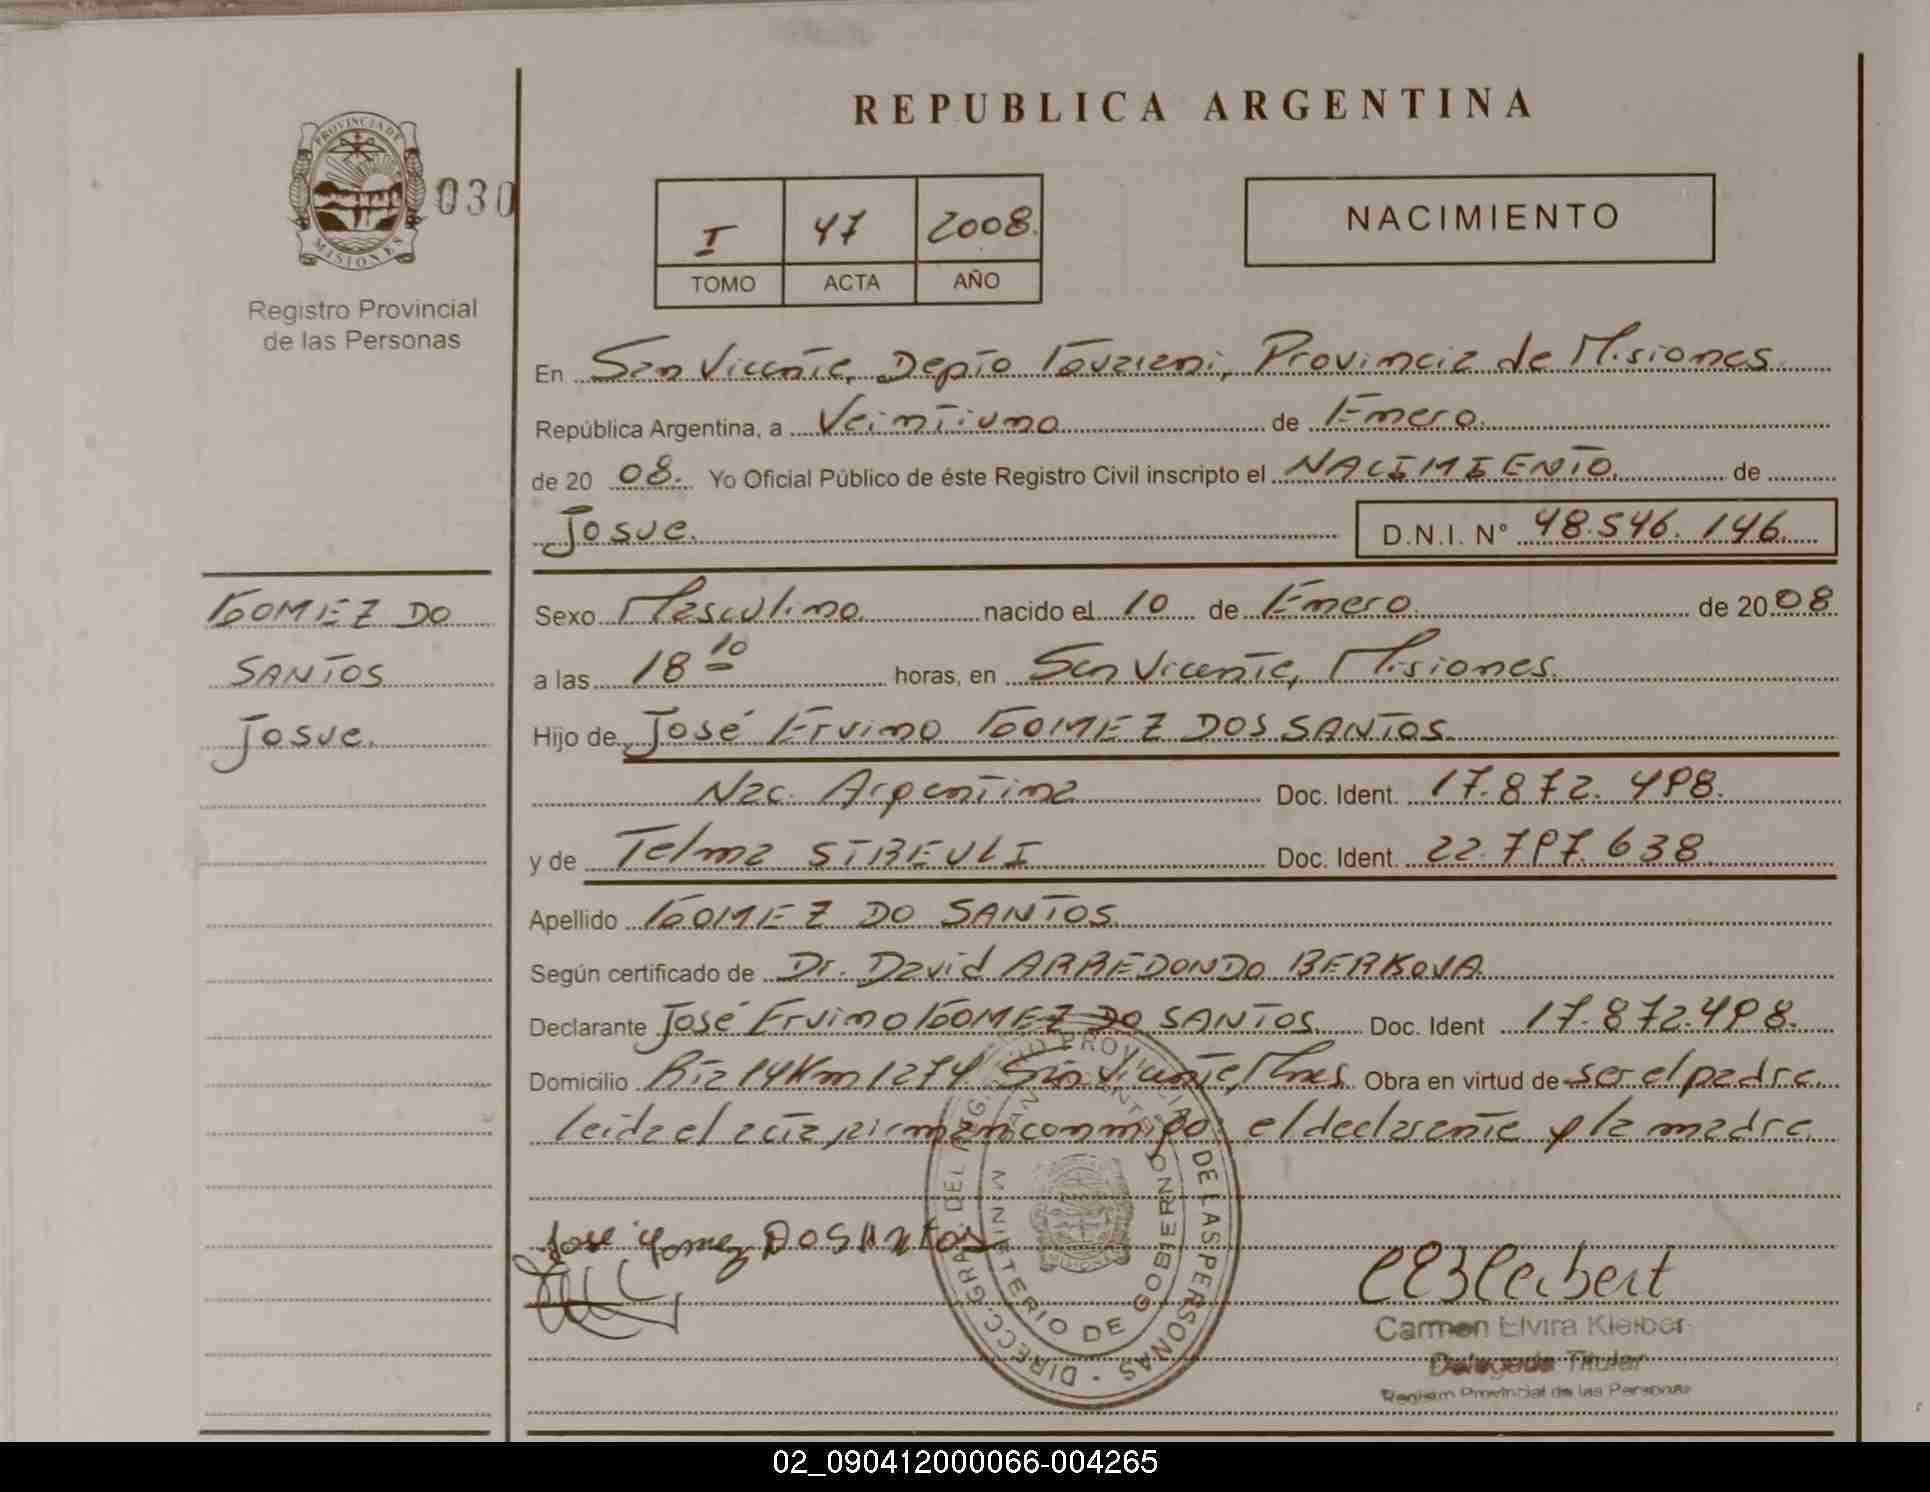 REPUBLICA ARGENTINA
PROVINCIA DE
MISIONES
030
Registro Provincial
de las Personas
I 47 2008.
TOMO ACTA AÑO
NACIMIENTO
En San Vicente, Depto Guarani, Provincia de Misiones
República Argentina, a Veintiuno de Enero.
de 20 08. Yo Oficial Público de éste Registro Civil inscripto el NACIMIENTO de
Josue. D.N.I. N° 48.546.146.
GOMEZ DO
SANTOS
Josue.
Sexo Masculino nacido el 10 de Enero de 20 08
a las 18 10 horas, en San Vicente, Misiones.
Hijo de José Ervino GOMEZ DOS SANTOS
Nac. Argentina Doc. Ident. 17.872.498.
y de Telma STREULI Doc. Ident. 22.797.638
Apellido GOMEZ DO SANTOS
Según certificado de Dr. David ARREDONDO BERKOVA
Declarante José Ervino GOMEZ DO SANTOS Doc. Ident 17.872.498.
Domicilio Rta 14 Km 1274 San Vicente, Mnes Obra en virtud de ser el padre
leida el acta, firman conmigo el declarante y la madre
José Gomez Do Santos
DIRECC. GRAL. DEL REG. PROVINCIAL DE LAS PERSONAS
MINISTERIO DE GOBIERNO
MISIONES
Carmen Elvira Kleiber
Delegada Titular
Registro Provincial de las Personas
02_090412000066-004265